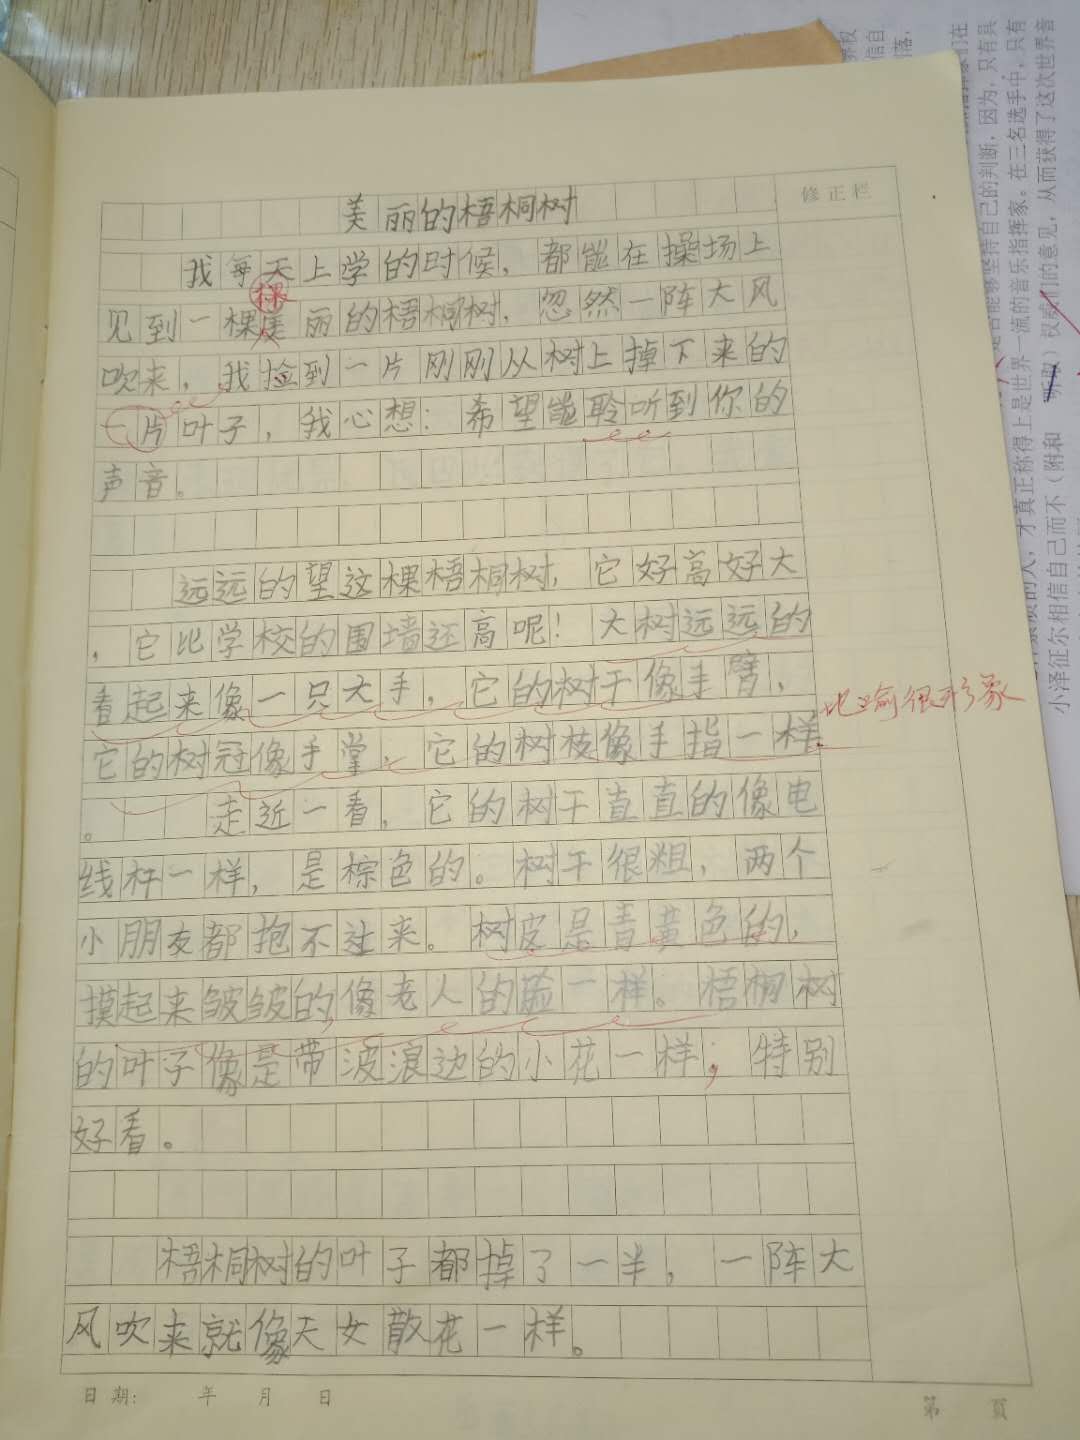 修正栏
美丽的梧桐树
我每天上学的时候，都能在操场上
棵
见到一棵美丽的梧桐树，忽然一阵大风
吹来，我捡到一片刚刚从树上掉下来的
一片叶子，我心想：希望能聆听到你的
声音。
远远的望这棵梧桐树，它好高好大
，它比学校的围墙还高呢！大树远远的
看起来像一只大手，它的树干像手臂，
比喻很形象
它的树冠像手掌，它的树枝像手指一样
。走近一看，它的树干直直的像电
线杆一样，是棕色的。树干很粗，两个
小朋友都抱不过来。树皮是青黄色的，
摸起来皱皱的像老人的脸一样。梧桐树
的叶子像是带波浪边的小花一样；特别
好看。
梧桐树的叶子都掉了一半，一阵大
风吹来就像天女散花一样。
日期：年 月 日
第 页
们在
是否能够坚持自己的判断，因为，只有具
的人，才真正称得上是世界一流的音乐指挥家。在三名选手中，只有
小泽征尔相信自己而不（附和 听取）权威们的意见，从而获得了这次世界音